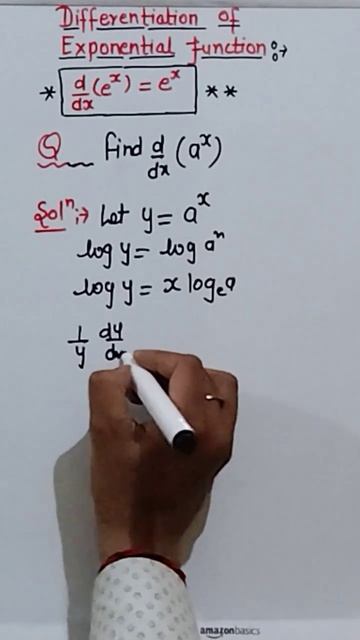 Differentiation of
Exponential function :→
* d/dx (eˣ) = eˣ **
Q Find d/dx (aˣ)
Solⁿ :→ Let y = aˣ
log y = log aⁿ
log y = x logₑa
1/y dy/dx
amazonbasics